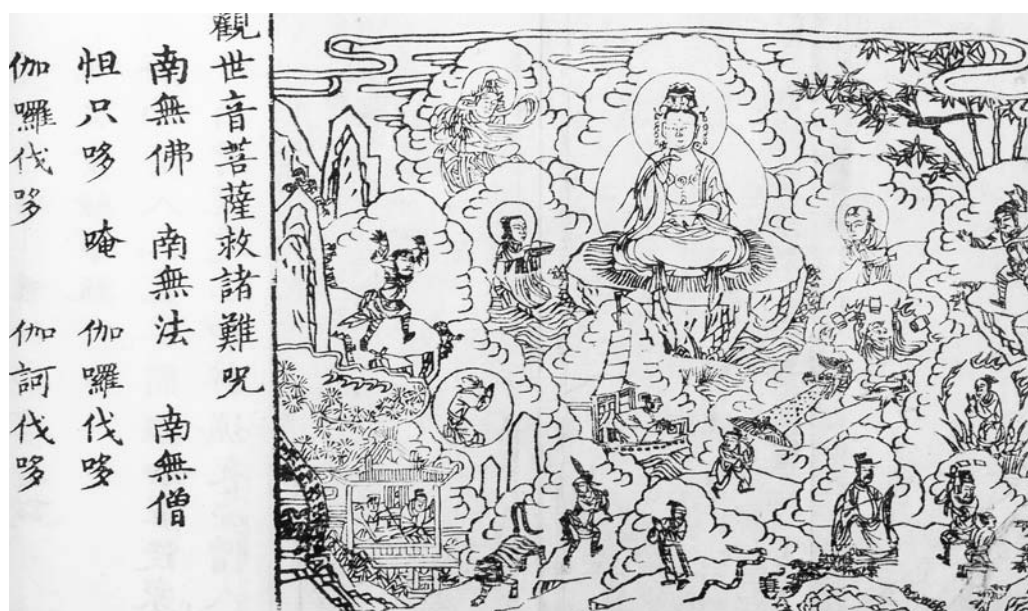 觀世音菩薩救諸難咒
南無佛 南無法 南無僧
怛只哆 唵 伽囉伐哆
伽囉伐哆 伽訶伐哆